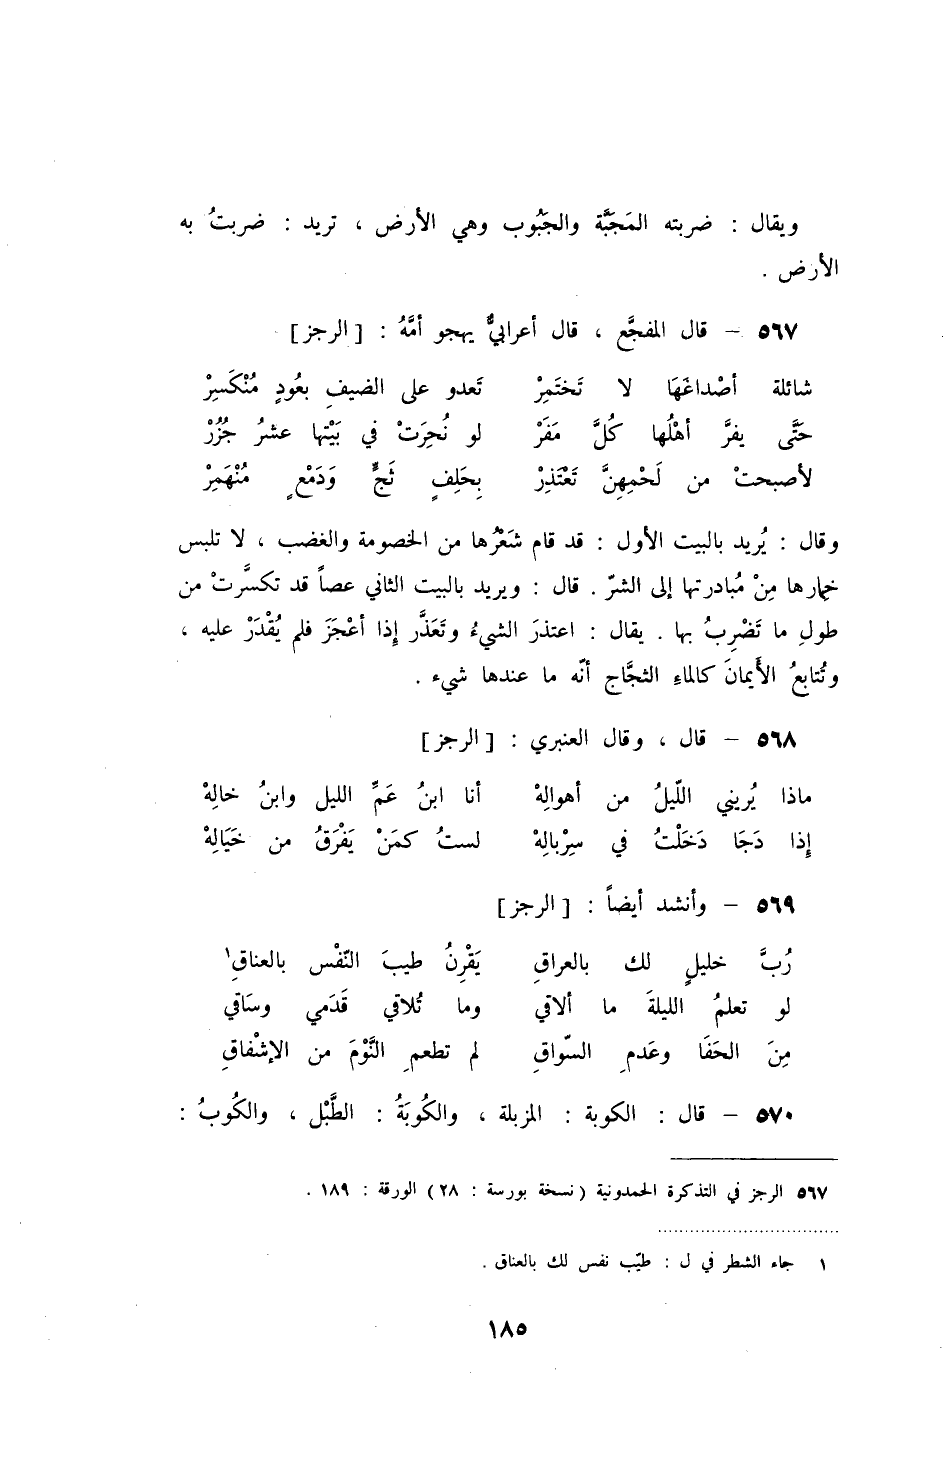 ويقال : ضربته المَجَبَّة والجَبُوب وهي الأرض ، تريد : ضربتُ به
الأرض .
٥٦٧ – قال المفجَّع ، قال أعرابيٌّ يهجو أمَّهُ : [ الرجز ]
شائلة أصْداغَهَا لا تَختَمِرْ تَعدو على الضيفِ بعُودٍ مُنْكَسِرْ
حَتَّى يفرَّ أهْلُها كُلَّ مَفَرْ لو نُحِرَتْ في بَيْتِها عشرُ جُزُرْ
لأصبحتْ من لَحْمِهِنَّ تَعْتَذِرْ بِحَلِفٍ ثَجٍّ وَدَمْعٍ مُنْهَمِرْ
وقال : يُريد بالبيت الأول : قد قام شَعَرُها من الخصومة والغضب ، لا تلبس
خمارها مِنْ مُبادرتها إلى الشرّ . قال : ويريد بالبيت الثاني عصاً قد تكسَّرتْ من
طولِ ما تَضْرِبُ بها . يقال : اعتذرَ الشيءُ وتَعَذَّر إذا أعْجَزَ فلم يُقْدَرْ عليه ،
وتُتابعُ الأَيمانَ كالماءِ الثجَّاج أنّه ما عندها شيء .
٥٦٨ – قال ، وقال العنبري : [ الرجز ]
ماذا يُريني اللّيلُ من أهوالِهْ أنا ابنُ عَمِّ الليل وابنُ خالِهْ
إذا دَجَا دَخَلْتُ في سِرْبالِهْ لستُ كمَنْ يَفْرَقُ من خَيَالِهْ
٥٦٩ – وأنشد أيضاً : [ الرجز ]
رُبَّ خليلٍ لك بالعراقِ يَقْرِنُ طيبَ النّفْس بالعناقِ١
لو تعلمُ الليلةَ ما ألاقي وما تُلاقي قَدَمي وسَاقي
مِنَ الحَفَا وعَدمِ السّواقِ لم تطعمِ النَّوْمَ من الإشْفاقِ
٥٧٠ – قال : الكوبة : المزبلة ، والكُوبَةُ : الطَّبْل ، والكُوبُ :
٥٦٧ الرجز في التذكرة الحمدونية (نسخة بورسة : ٢٨) الورقة : ١٨٩ .
١ جاء الشطر في ل : طيّب نفس لك بالعناق .
١٨٥